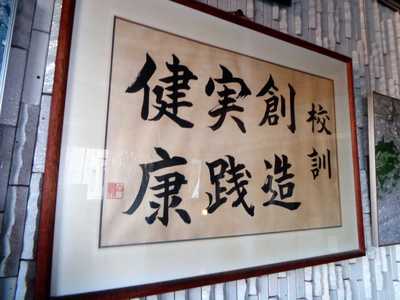 校訓
創造
実践
健康